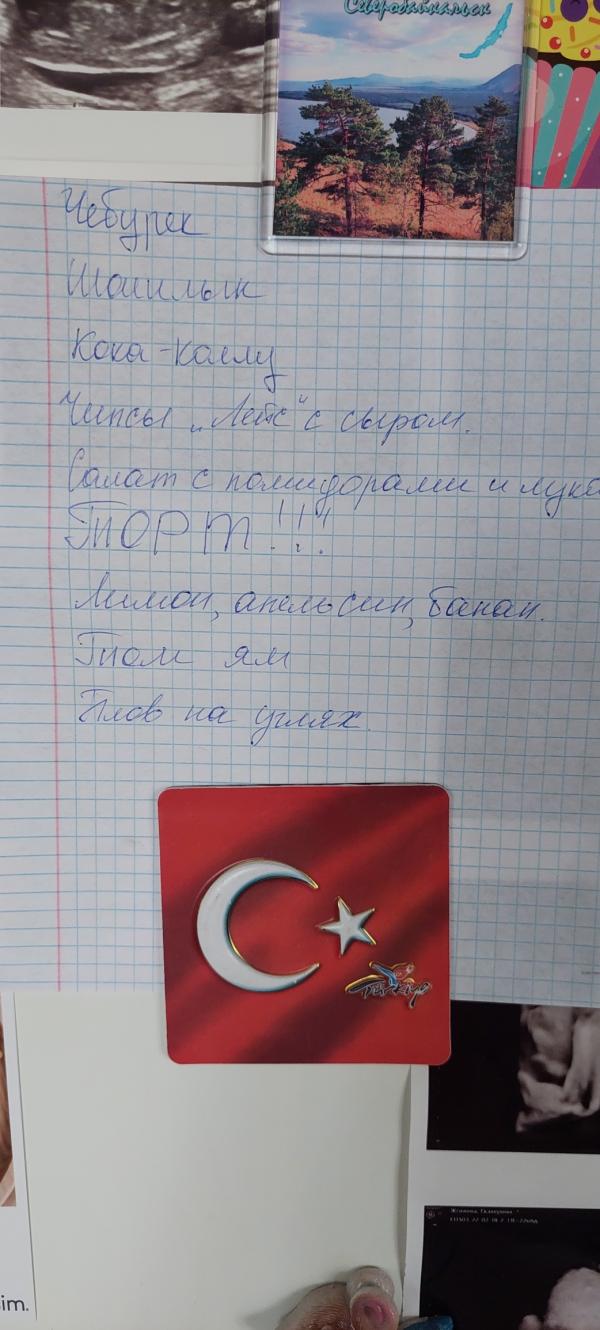 Северобайкальск
Чебурек
Шашлык
Кока-коллу
Чипсы „Лейс" с сыром.
Салат с помидорами и луко
ТОРТ!!!
Лимон, апельсин, банан.
Том ям
Плов на углях.
Türkiye
im.